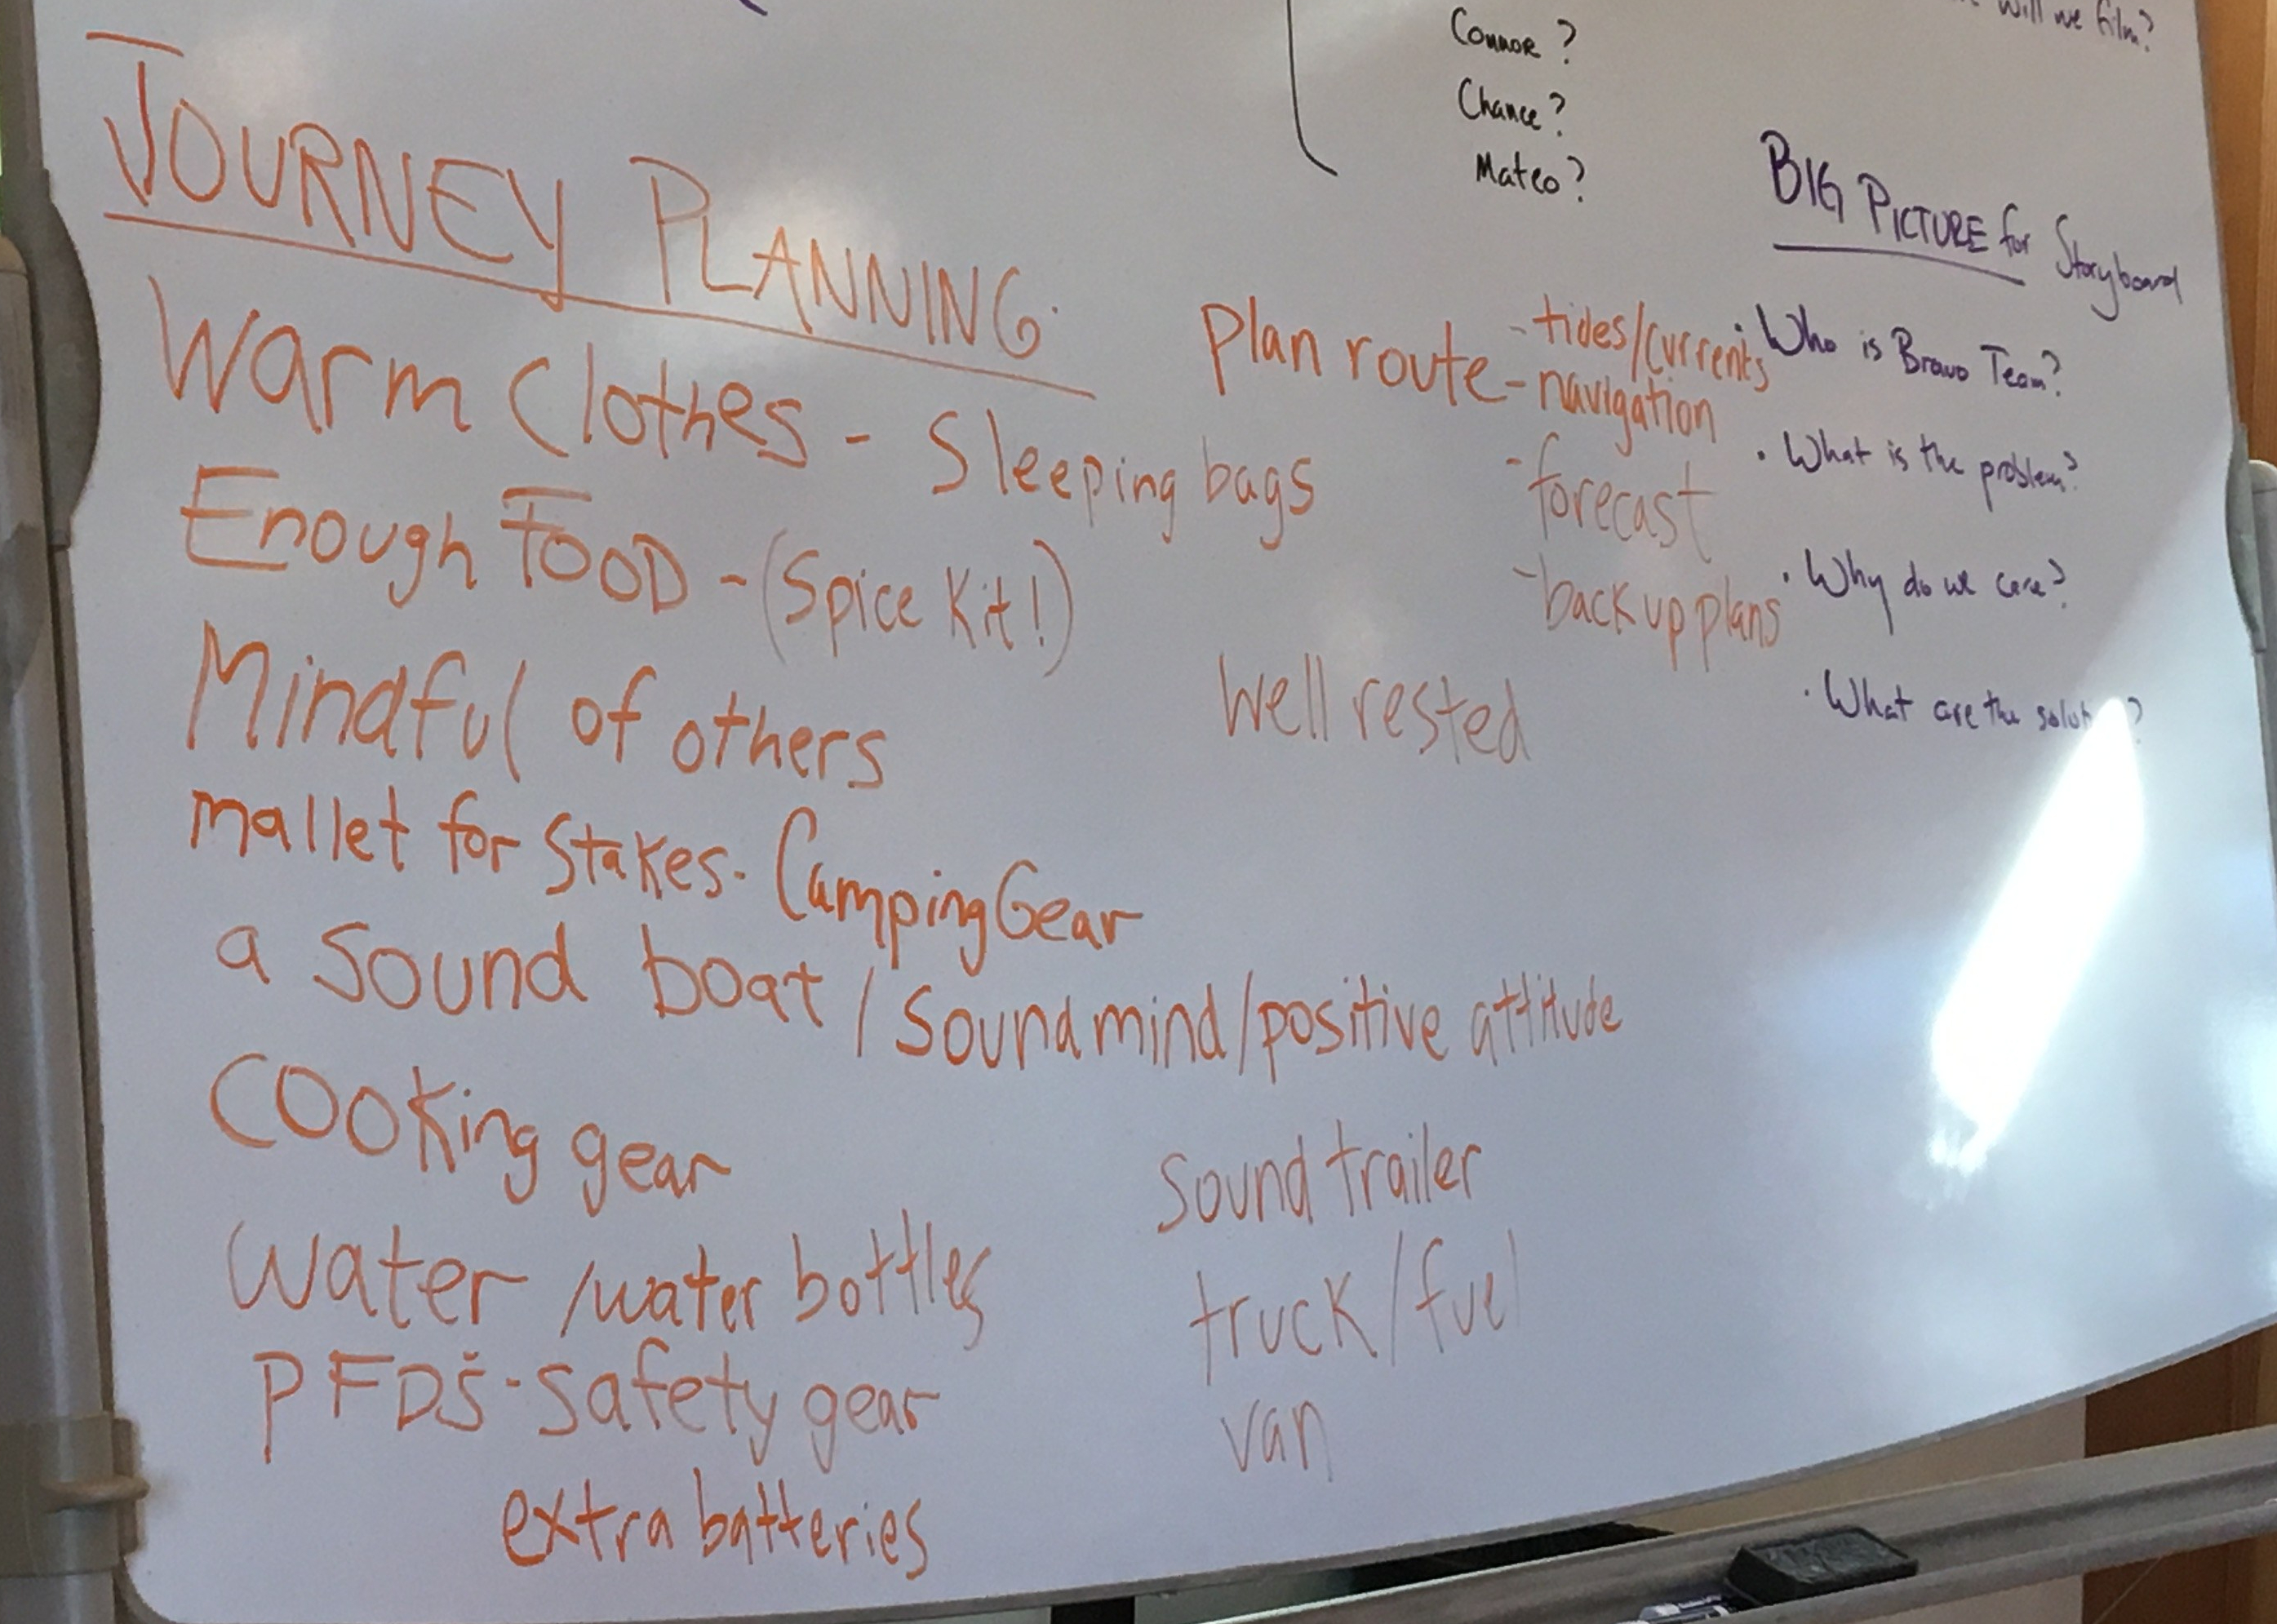 will we film?
Connor?
Chance?
Mateo?
JOURNEY PLANNING.
Warm Clothes - Sleeping bags
Enough FOOD - (Spice Kit!)
Mindful of others
mallet for Stakes - Camping Gear
a sound boat / sound mind / positive attitude
Cooking gear
water / water bottles
PFDS - safety gear
extra batteries
Plan route - tides/currents
- navigation
- forecast
- back up plans
well rested
sound trailer
truck / fuel
van
BIG PICTURE for Storyboard
· Who is Bravo Team?
· What is the problem?
· Why do we care?
· What are the ?